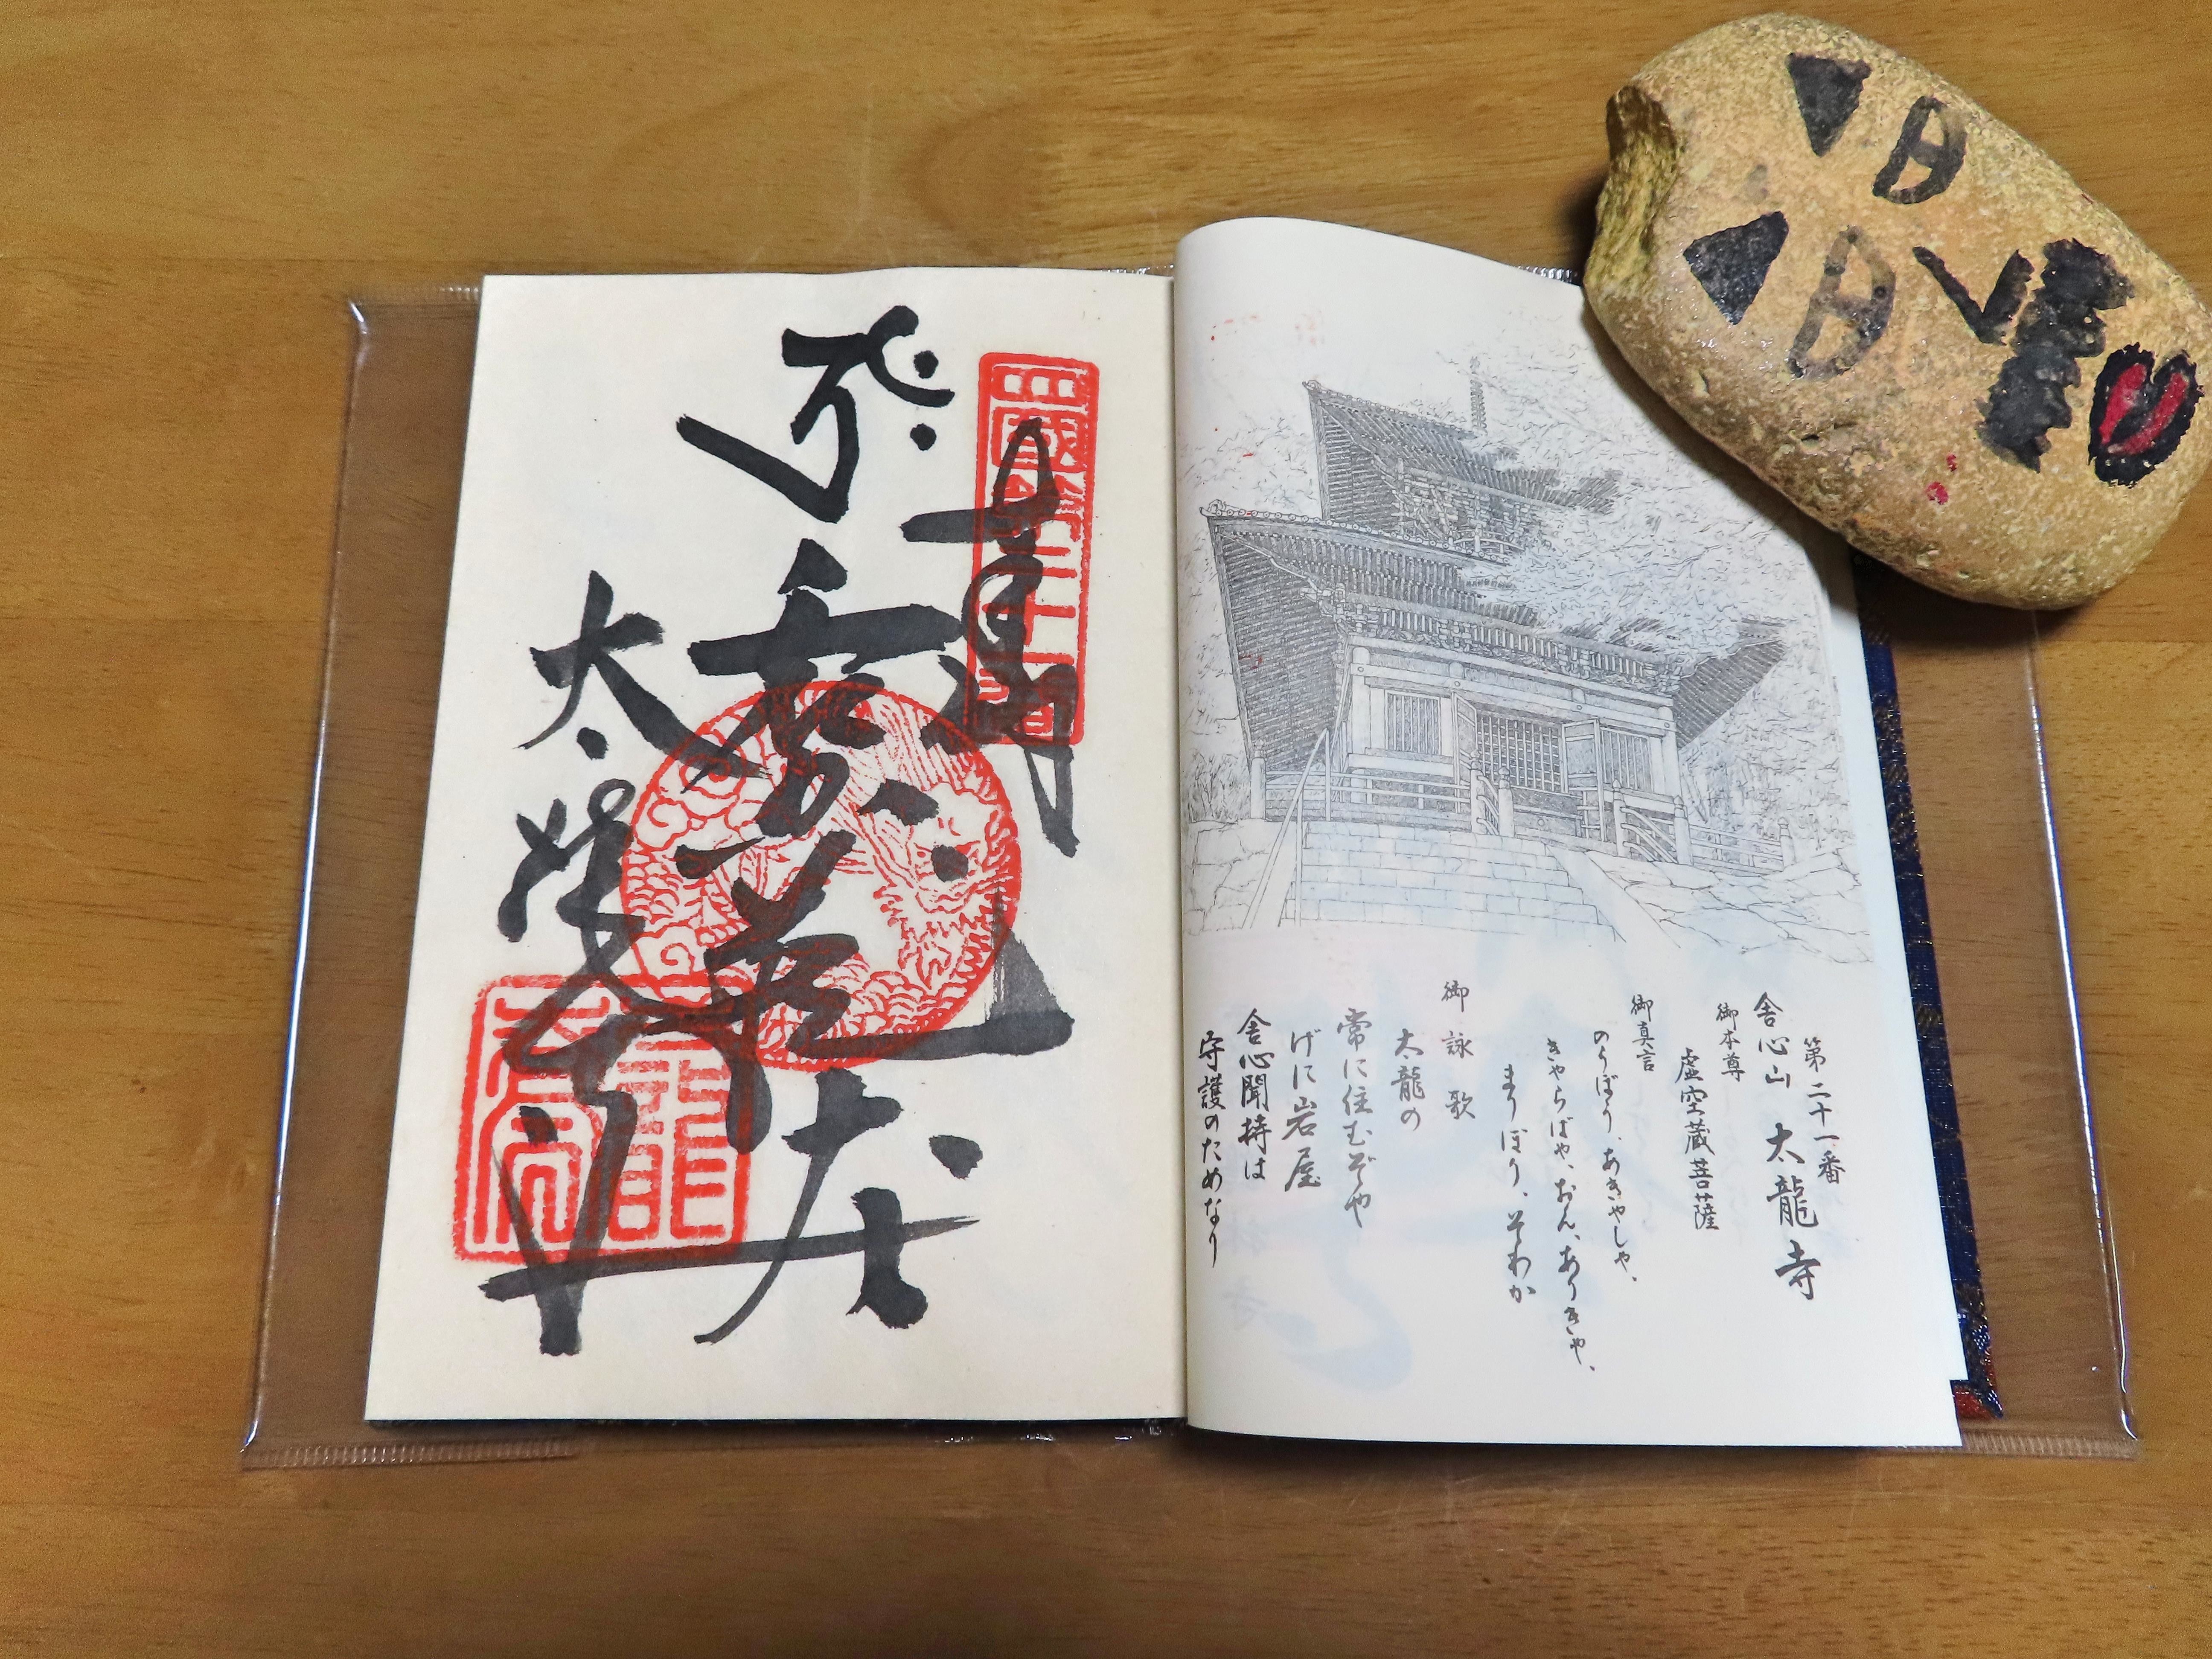 第二十一番
舎心山 太龍寺
御本尊
虚空蔵菩薩
御真言
のうぼう、あきゃしゃ、
きゃらばや、おん、ありきゃ、
まりぼり、そわか
御詠歌
太龍の
常に住むぞや
げに岩屋
舎心聞持は
守護のためなり
四國第二十一番
奉納
太龍寺